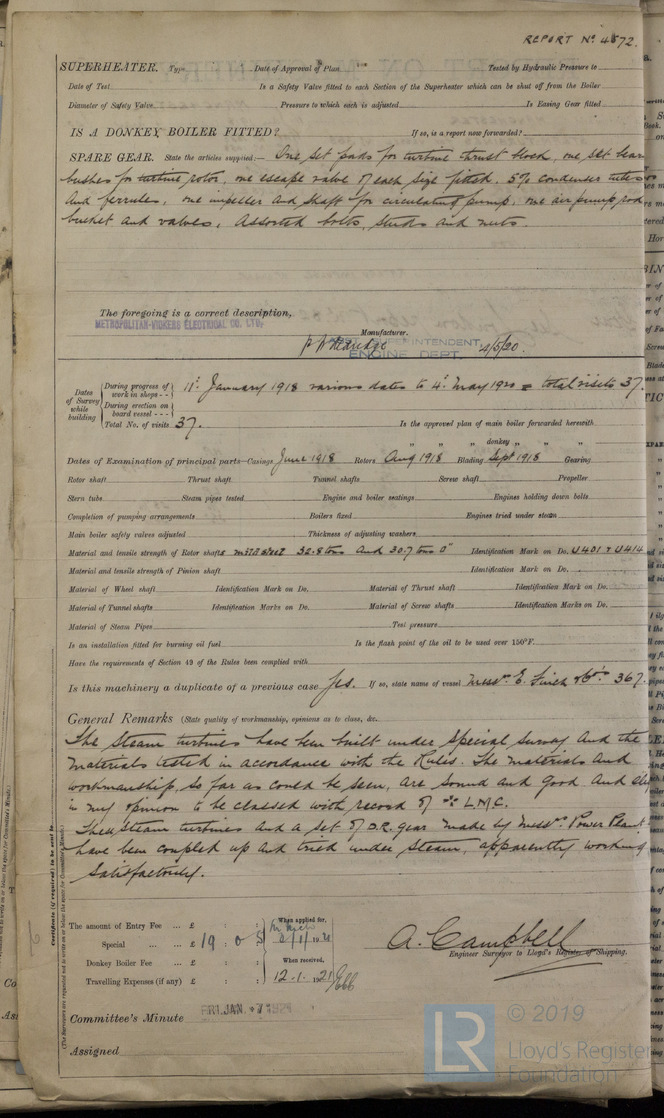 REPORT No. 4872.
SUPERHEATER. Type Date of Approval of Plan Tested by Hydraulic Pressure to
Date of Test Is a Safety Valve fitted to each Section of the Superheater which can be shut off from the Boiler
Diameter of Safety Valve Pressure to which each is adjusted Is Easing Gear fitted
IS A DONKEY BOILER FITTED? If so, is a report now forwarded?
SPARE GEAR. State the articles supplied:— One set pads for turbine thrust block, one set bear
bushes for turbine rotor, one escape valve of each size fitted. 5% condenser tubes
and ferrules, one impeller and shaft for circulating pump, one air pump rod
bucket and valves, assorted bolts, studs and nuts.
The foregoing is a correct description,
METROPOLITAN-VICKERS ELECTRICAL CO. LTD.
Manufacturer.
INTENDENT,
ENGINE DEPT. 4/5/20.
Dates of Survey while building
During progress of work in shops -- 11th January 1918 various dates to 4th May 1920 = total visits 37.
During erection on board vessel ---
Total No. of visits 37. Is the approved plan of main boiler forwarded herewith
" " " donkey " " "
Dates of Examination of principal parts—Casings June 1918 Rotors Aug 1918 Blading Sept 1918 Gearing
Rotor shaft Thrust shaft Tunnel shafts Screw shaft Propeller
Stern tube Steam pipes tested Engine and boiler seatings Engines holding down bolts
Completion of pumping arrangements Boilers fixed Engines tried under steam
Main boiler safety valves adjusted Thickness of adjusting washers
Material and tensile strength of Rotor shafts mild steel 32.8 tons and 30.7 tons □" Identification Mark on Do. U401 & U414
Material and tensile strength of Pinion shaft Identification Mark on Do.
Material of Wheel shaft Identification Mark on Do. Material of Thrust shaft Identification Mark on Do.
Material of Tunnel shafts Identification Marks on Do. Material of Screw shafts Identification Marks on Do.
Material of Steam Pipes Test pressure
Is an installation fitted for burning oil fuel Is the flash point of the oil to be used over 150°F.
Have the requirements of Section 49 of the Rules been complied with
Is this machinery a duplicate of a previous case Yes. If so, state name of vessel Messrs. E. Finch & Co's 367.
General Remarks (State quality of workmanship, opinions as to class, &c.
The steam turbines have been built under special survey and the
materials tested in accordance with the Rules. The materials and
workmanship, so far as could be seen, are sound and good and
in my opinion to be classed with record of L.M.C.
These steam turbines and a set of D.R. gear made by Messrs. Power Plant
have been coupled up and tried under steam, apparently working
satisfactorily.
Certificate (if required) to be sent to
(The Surveyors are requested not to write on or below the space for Committee's Minute.)
The amount of Entry Fee ... £ : : When applied for,
Special ... ... £ 19 : 0 : 5
Donkey Boiler Fee ... £ : : When received,
Travelling Expenses (if any) £ : : 12.1.1921
A. Campbell
Engineer Surveyor to Lloyd's Register of Shipping.
Committee's Minute FRI. JAN. 7 1921
Assigned
LR © 2019
Lloyd's Register
Foundation